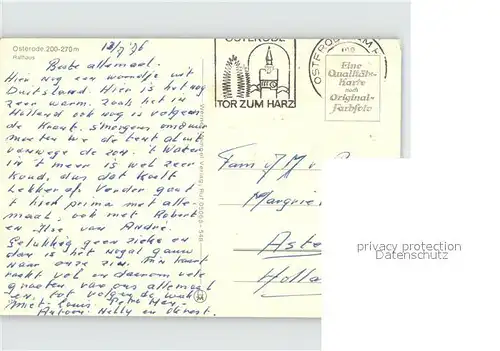 Osterode, 200-270m
Rathaus
12/7 '76
Beste allemaal.
Hier nog een woordje uit
Duitsland. Hier is het nog
zeer warm. Zoals het in
Holland ook nog is volgens
de Krant. s'morgens om 9 uur
moeten we de tent al uit
vanwege de zon. 't Water
in 't meer is wel zeer
Koud, dus dat Koelt
Lekker af. Verder gaat
't hier prima met alle-
maal, ook met Robert
en Ilse van André.
Gelukkig geen zieke en
dan is het nogal gauw
naar onze zin. Mijn kaart
raakt vol en daarom vele
groeten van ons allemaal
en, tot volgende week
Miet - Louis. Petro
Antoon. Nelly en
OSTERODE
TOR ZUM HARZ
OSTERODE AM H
Eine
Qualitäts-
Karte
nach
Original-
Farbfoto
Verlag, Ruf 05063-548
Fam v/d M
Margrie
Aste
Holla
privacy protection
oldthing.de/AGB